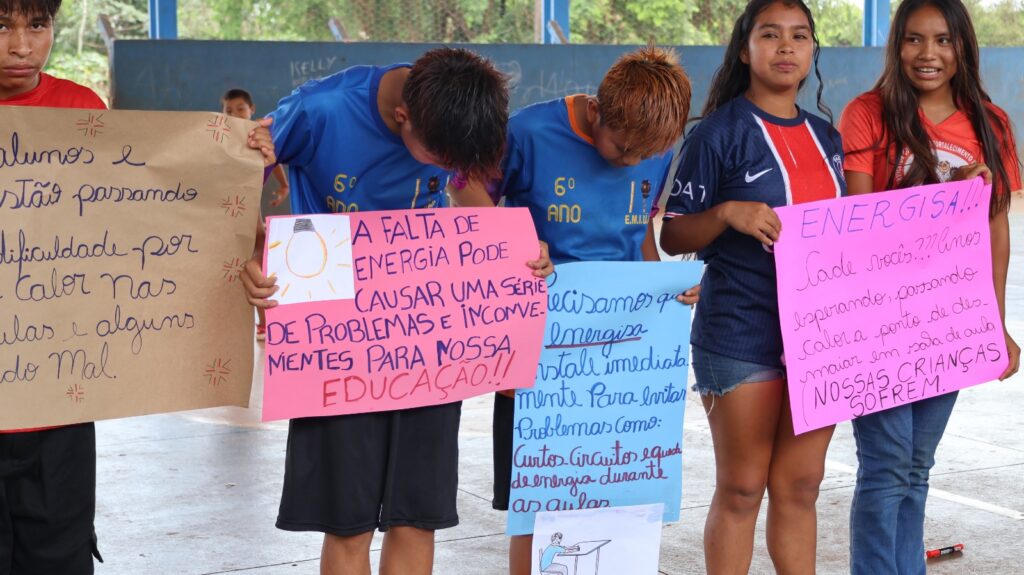 KELLY
alunos e
estão passando
dificuldade por
calor nas
aulas e alguns
do Mal.
6º
ANO
A FALTA DE
ENERGIA PODE
CAUSAR UMA SÉRIE
DE PROBLEMAS E INCONVE-
MIENTES PARA NOSSA
EDUCAÇÃO!!
6º
ANO
E.M.I.
Precisamos que
energisa
instale imediata
mente Para evitar
Problemas como:
Curtos Circuitos e queda
de energia durante
as aulas
ENERGISA!!!
Cade vocês?!!! Alunos
esperando, passando
calor a ponto de des-
maiar em sala de aula.
NOSSAS CRIANÇAS
SOFREM.